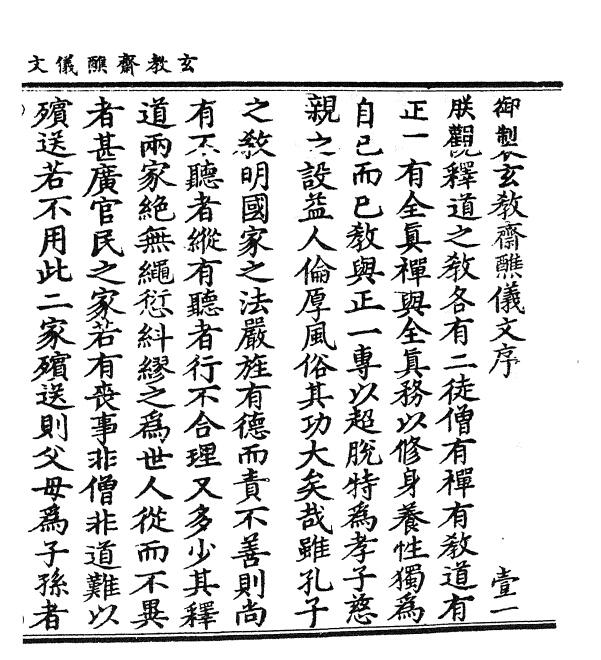 玄教齋醮儀文
御製玄教齋醮儀文序 壹一
朕觀釋道之教各有二徒僧有禪有教道有
正一有全真禪與全真務以修身養性獨為
自己而已教與正一專以超脫特為孝子慈
親之設益人倫厚風俗其功大矣哉雖孔子
之教明國家之法嚴旌有德而責不善則尚
有不聽者縱有聽者行不合理又多少其釋
道兩家絕無繩愆糾繆之為世人從而不異
者甚廣官民之家若有喪事非僧非道難以
殯送若不用此二家殯送則父母為子孫者